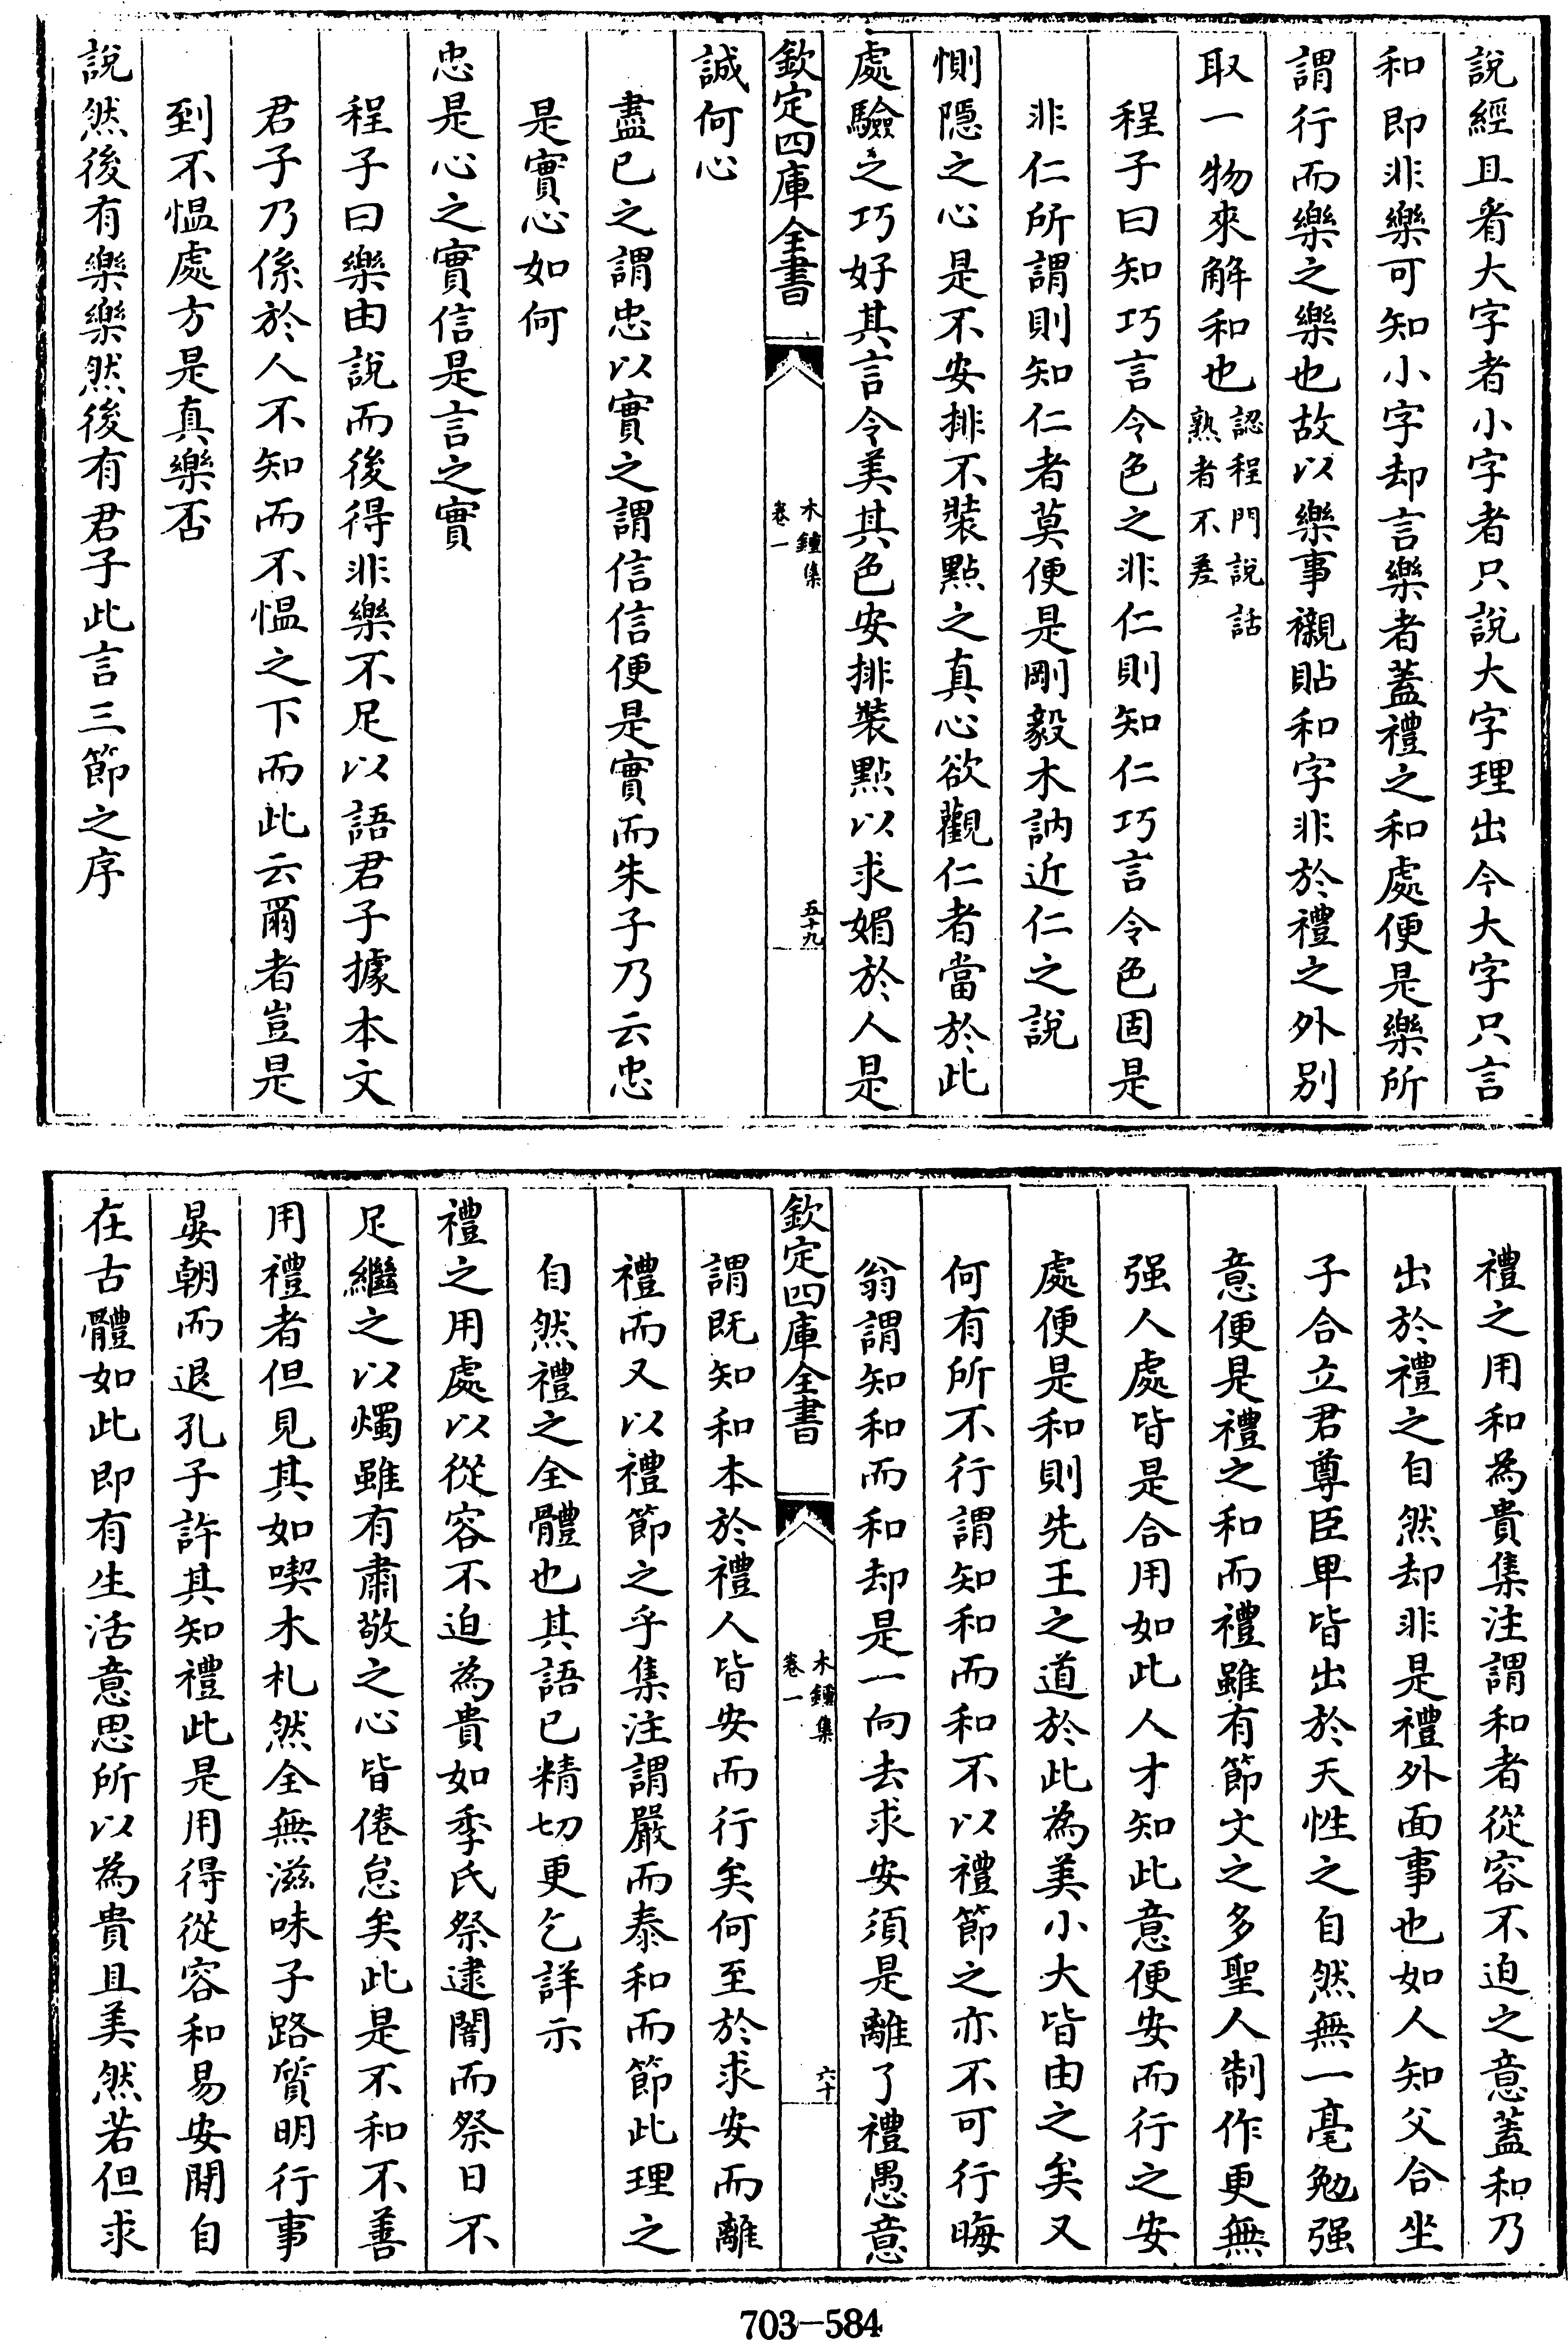 說經且看大字者小字者只說大字理出今大字只言
和即非樂可知小字却言樂者蓋禮之和處便是樂所
謂行而樂之樂也故以樂事襯貼和字非於禮之外别
取一物來解和也認程門說話熟者不差
程子曰知巧言令色之非仁則知仁巧言令色固是
非仁所謂則知仁者莫便是剛毅木訥近仁之說
惻隠之心是不安排不裝點之真心欲觀仁者當於此
處驗之巧好其言令美其色安排裝點以求媚於人是
欽定四庫全書
木鍾集
卷一
五十九
誠何心
盡已之謂忠以實之謂信信便是實而朱子乃云忠
是實心如何
忠是心之實信是言之實
程子曰樂由說而後得非樂不足以語君子據本文
君子乃係於人不知而不愠之下而此云爾者豈是
到不愠處方是真樂否
說然後有樂樂然後有君子此言三節之序
禮之用和為貴集注謂和者從容不迫之意蓋和乃
出於禮之自然却非是禮外面事也如人知父合坐
子合立君尊臣卑皆出於天性之自然無一毫勉强
意便是禮之和而禮雖有節文之多聖人制作更無
强人處皆是合用如此人才知此意便安而行之安
處便是和則先王之道於此為美小大皆由之矣又
何有所不行謂知和而和不以禮節之亦不可行晦
翁謂知和而和却是一向去求安須是離了禮愚意
欽定四庫全書
木鍾集
卷一
六十
謂既知和本於禮人皆安而行矣何至於求安而離
禮而又以禮節之乎集注謂嚴而泰和而節此理之
自然禮之全體也其語已精切更乞詳示
禮之用處以從容不迫為貴如季氏祭逮闇而祭日不
足繼之以燭雖有肅敬之心皆倦怠矣此是不和不善
用禮者但見其如喫木札然全無滋味子路質明行事
晏朝而退孔子許其知禮此是用得從容和易安閒自
在古體如此即有生活意思所以為貴且美然若但求
703—584